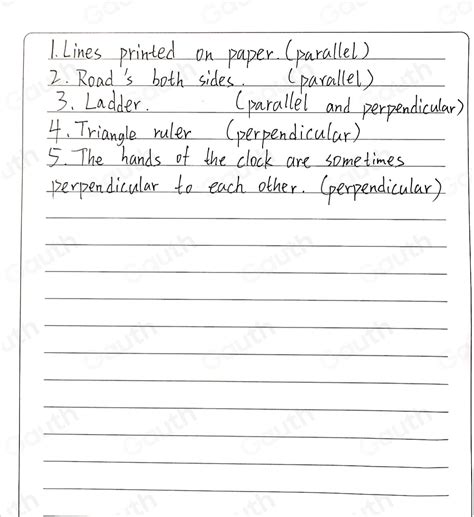 1. Lines printed on paper. (parallel)
2. Road's both sides. (parallel)
3. Ladder. (parallel and perpendicular)
4. Triangle ruler (perpendicular)
5. The hands of the clock are sometimes
perpendicular to each other. (perpendicular)